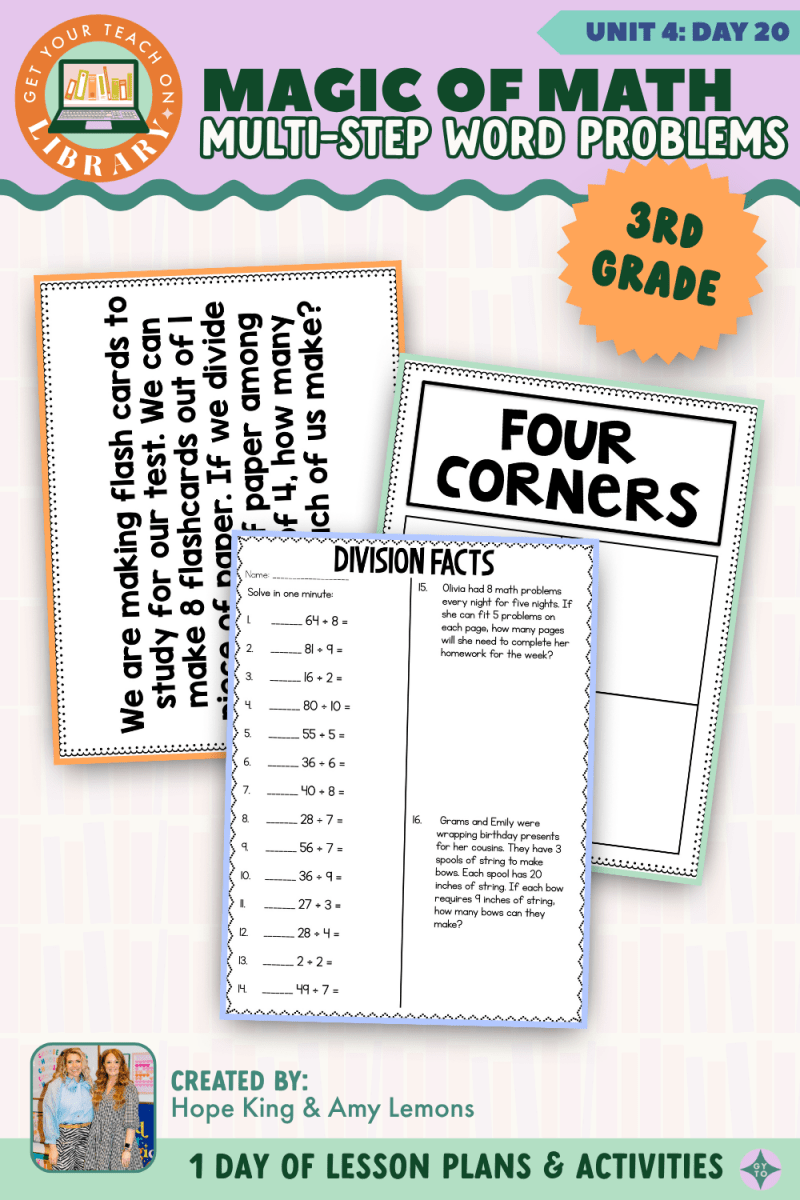 UNIT 4: DAY 20
GET YOUR TEACH ON
LIBRARY
MAGIC OF MATH
MULTI-STEP WORD PROBLEMS
3RD
GRADE
We are making flash cards to
study for our test. We can
make 8 flashcards out of 1
piece of paper. If we divide
paper among
of 4, how many
of us make?
FOUR
CORNERS
DIVISION FACTS
Name:
Solve in one minute:
1. ______ 64 ÷ 8 =
2. ______ 81 ÷ 9 =
3. ______ 16 ÷ 2 =
4. ______ 80 ÷ 10 =
5. ______ 55 ÷ 5 =
6. ______ 36 ÷ 6 =
7. ______ 40 ÷ 8 =
8. ______ 28 ÷ 7 =
9. ______ 56 ÷ 7 =
10. ______ 36 ÷ 9 =
11. ______ 27 ÷ 3 =
12. ______ 28 ÷ 4 =
13. ______ 2 ÷ 2 =
14. ______ 49 ÷ 7 =
15. Olivia had 8 math problems
every night for five nights. If
she can fit 5 problems on
each page, how many pages
will she need to complete her
homework for the week?
16. Grams and Emily were
wrapping birthday presents
for her cousins. They have 3
spools of string to make
bows. Each spool has 20
inches of string. If each bow
requires 9 inches of string,
how many bows can they
make?
CREATED BY:
Hope King & Amy Lemons
1 DAY OF LESSON PLANS & ACTIVITIES
GY
TO